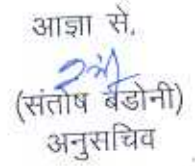 आज्ञा से,
(संतोष बडोनी)
अनुसचिव